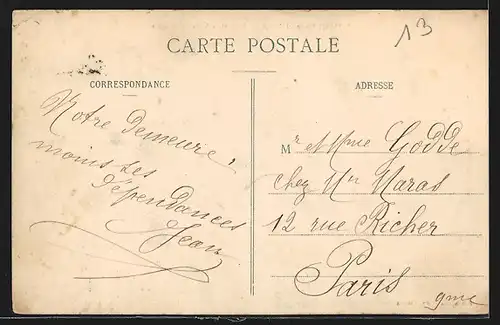 13
CARTE POSTALE
CORRESPONDANCE
ADRESSE
Notre Demeure,
moins ses
Dépendances
Jean
Mr et Mme Godde
chez Mr Maras
12 rue Richer
Paris
9me